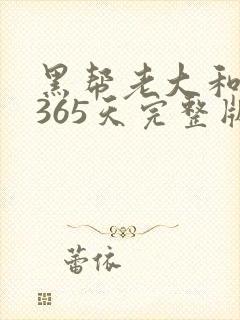 黑帮老大和
365天完整版
蕾依